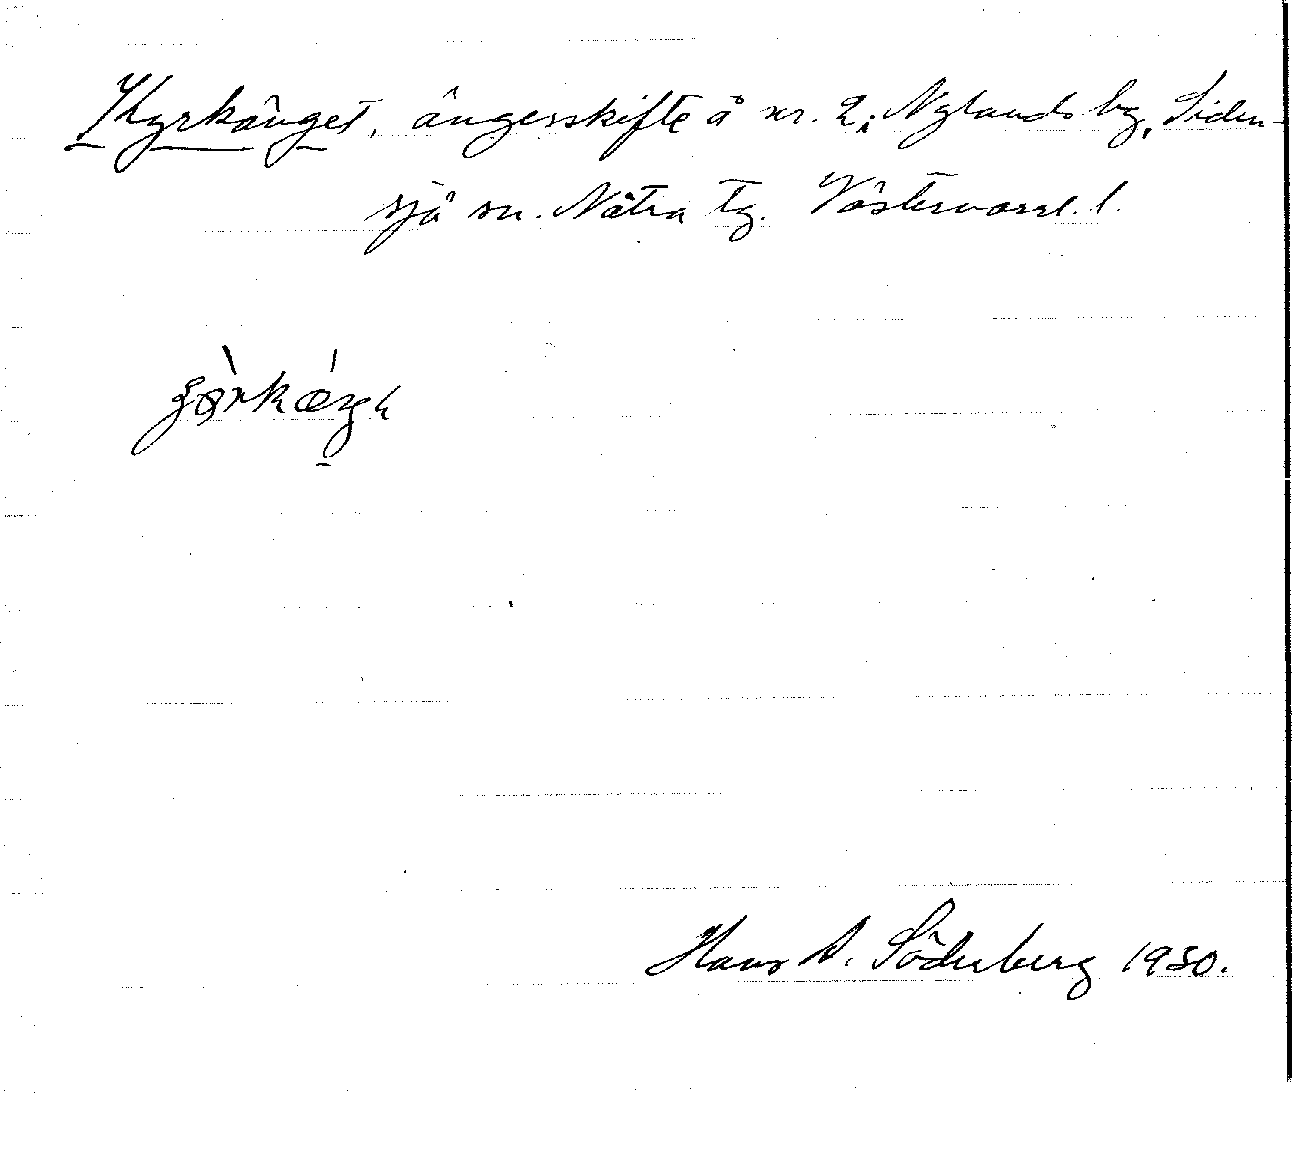 Kyrkänget, ängesskifte å nr. 2, Nylands by, Siden-
sjö sn. Nätra tg. Västernorrl. l.
Hans A. Söderberg 1930.